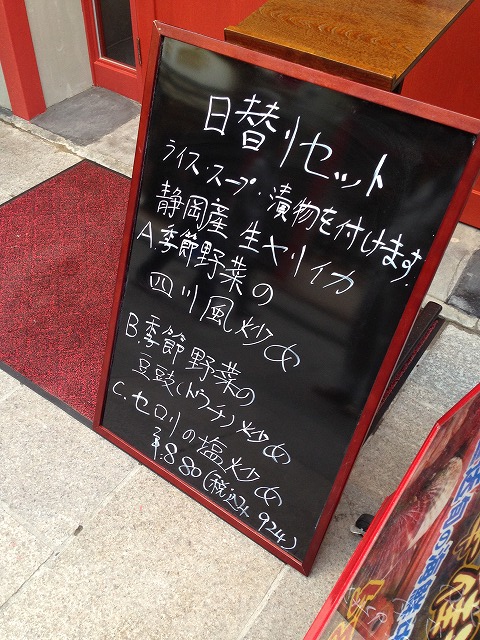 日替りセット
ライス・スープ・漬物を付けます。
静岡産 生ヤリイカ
A.季節野菜の
四川風炒め
B.季節野菜の
豆豉(ドウチ)炒め
C.セロリの塩炒め
¥.880(税込み924)